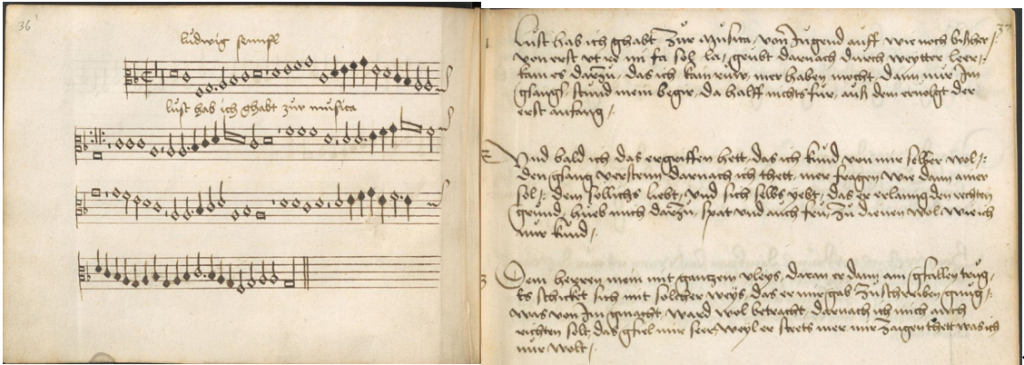 36
ludwig sennfl
lust hab ich ghabt zur musica
37
1 Lust hab ich ghabt zur Musica von Jugend auff wie noch bißher /:
von erst ut re mi fa sol la / geiebt darnach durch weytter leer /:
kan es darzu das ich kain ruw mer haben mocht, dann nur Im
gsang stuend mein begir, da halff nichts für, auß dem ervolgt der
erst anfang /
2 Und bald ich das ergriffen hett das ich kund von mir selber wol /:
den gsang versteen darnach ich thett mer fragen wie dann ainer
sol /: dem sollichs liebt und sich selbs yebt das er erlanng den rechten
grund, hueb mich darzu, spat und auch frue, zu dienen wol wie ich
nur kund /
3 Dem herren mein mit gantzem vleys, daran er dann ain gfallen trug /:
Es schicket sich mit solcher weys, das er mir gab zuschreiben gnug /:
was von Im gmacht ward wol betracht darnach ich mich auch
richten solt, das gfiel mir seer, weyl er steets mer mir zaigen thett was ich
nur wolt /